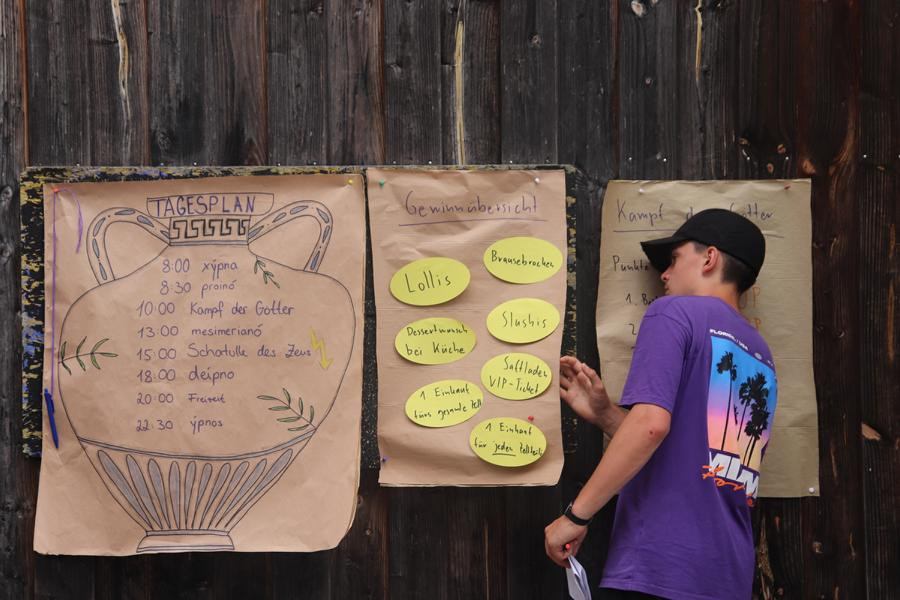 TAGESPLAN
8:00 xýpna
8:30 proinó
10:00 Kampf der Götter
13:00 mesimerianó
15:00 Schatulle des Zeus
18:00 deípno
20:00 Freizeit
22:30 ýpnos
Gewinnübersicht
Lollis
Brausebrocken
Dessertwunsch
bei Küche
Slushis
1 Einkauf
fürs gesamte Zelt
Saftladen
VIP-Ticket
1 Einkauf
für jeden Zeltteiln
Kampf der Götter
Punkte
1.
2
FLORIDA, USA